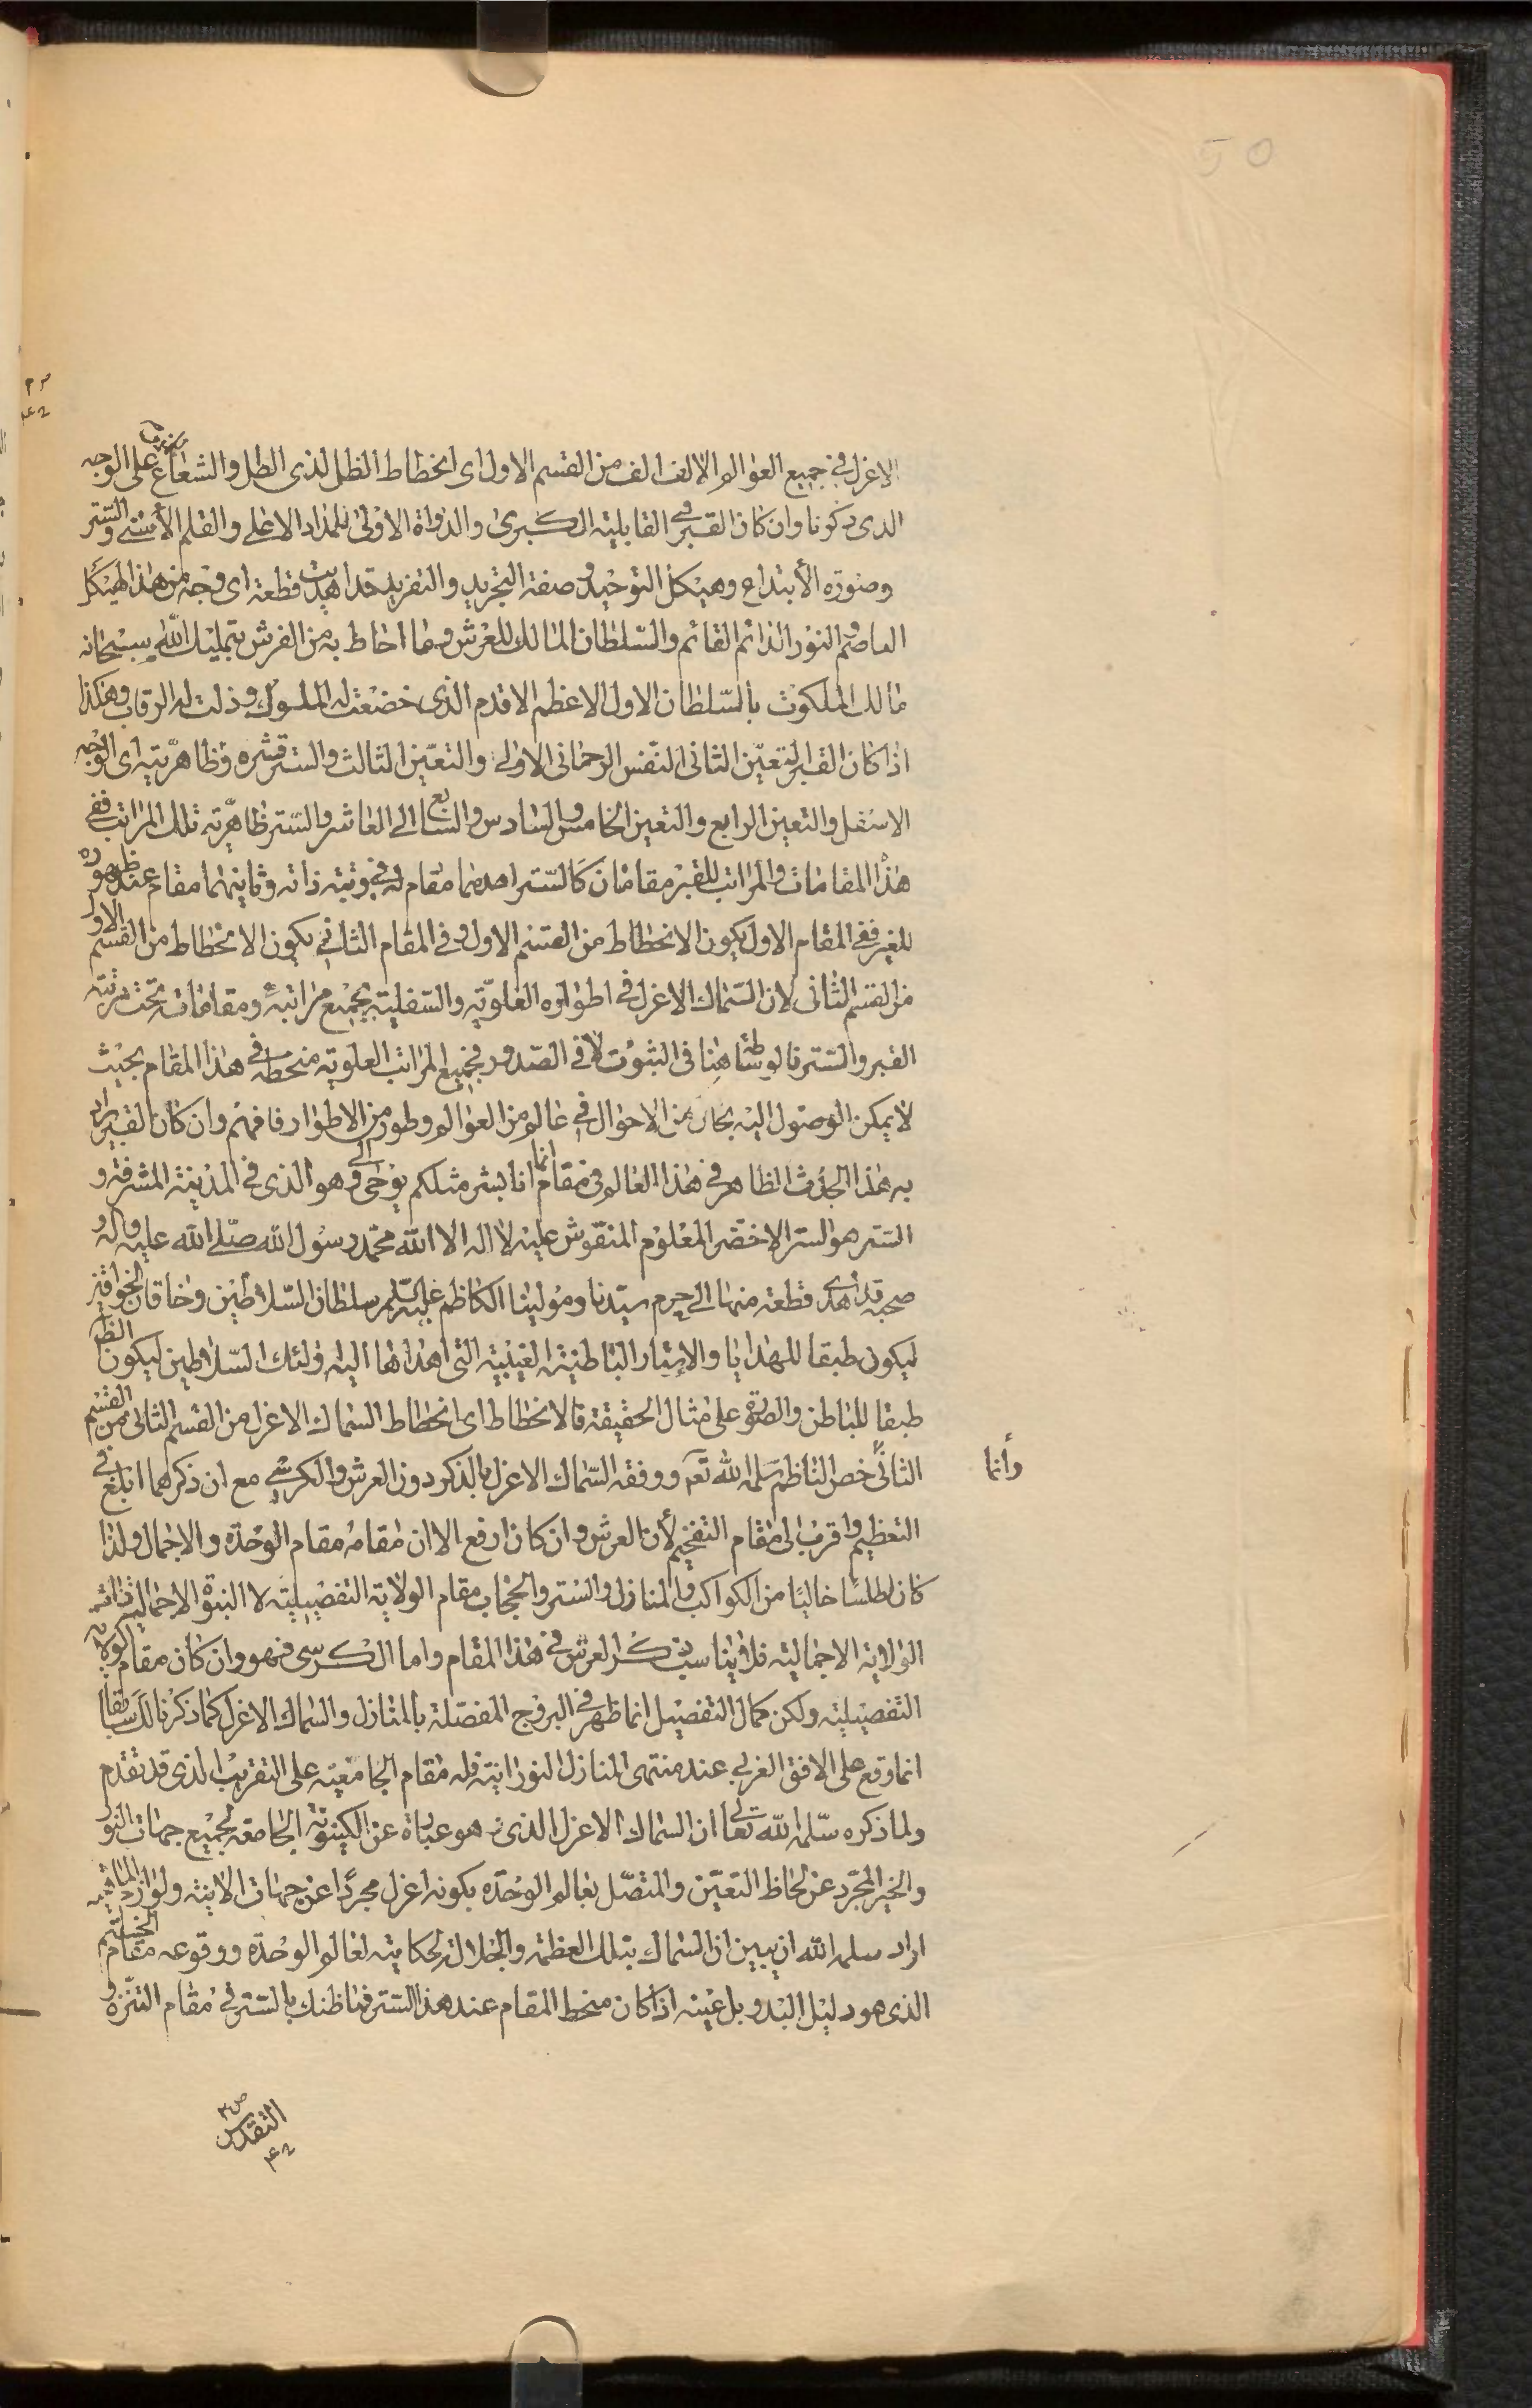 50
الاعزل في جميع العوالم الالف الف من القسم الاول اى انحطاط الظل لذى الظل والشعاع على الوجه
الذى ذكرنا وان كان القبر في القابلية الكبرى والدواة الاولى للمداد الاعلى والقلم الأسنى والستر
وصورة الأبتداع وهيكل التوحيد وصفة التجريد والتفريد قد اهديت قطعة اى وجه من هذا الهيكل
العاصم والنور الدائم القائم والسلطان المالك للعرش وما احاط به من الفرش بتمليك الله سبحانه
مالك الملكوت بالسلطان الاول الاعظم الاقدم الذى خضعت له الملوك وذلت له الرقاب وهكذا
اذا كان القبر التعين الثانى النفس الرحمانى الاولى والتعين الثالث والستر قشره وظاهريته اى الوجه
الاسفل والتعين الرابع والتعين الخامس والسادس والسابع الى العاشر والستر ظاهرية تلك المراتب ففى
هذا المقامات والمراتب للقبر مقامان كالستر احدهما مقام له في رتبة ذاته وثانيهما مقام عند ظهوره
للغير ففى المقام الاول يكون الانحطاط من القسم الاول وفى المقام الثانى يكون الانحطاط من القسم الاول
من القسم الثانى لان السماك الاعزل في اطواره العلوية والسفلية بجميع مراتبه ومقاماته تحت رتبة
القبر والستر فالوسائط هنا فى الثبوت لا فى الصدور فجميع المراتب العلوية منحطة في هذا المقام بحيث
لا يمكن الوصول اليه بحال من الاحوال في عالم من العوالم وطور من الاطوار فافهم وان كان القبر يراد
به هذا الجدث الظاهر في هذا العالم في مقام انما انا بشر مثلكم يوحى الى وهو الذى في المدينة المشرفة و
الستر هو الستر الاخضر المعلوم المنقوش عليه لا اله الا الله محمد رسول الله صلى الله عليه وآله و
صحبه قد اهدى قطعة منها الى حرم سيدنا ومولينا الكاظم عليه السلم سلطان السلاطين وخاقان الخواقين
ليكون طبقا للهدايا والاستار الباطنية الغيبية التى اهداها اليه اولئك السلاطين ليكون الظاهر
طبقا للباطن والصورة على مثال الحقيقة فالانحطاط اى انحطاط السماك الاعزل من القسم الثانى من القسم
الثانى خص الناظم سلمه الله تعه ووفقه السماك الاعزل بالذكر دون العرش والكرسي مع ان ذكرهما ابلغ في
وأنما
التعظيم واقرب الى مقام التفخيم لأن العرش وان كان ارفع الا ان مقامه مقام الوحدة والاجمال ولذا
كان اطلسا خاليا من الكواكب والمنازل والستر والحجاب مقام الولاية التفصيلية لا النبوة الاجمالية
الولاية الاجمالية فلا يناسب ذكر العرش في هذا المقام واما الكرسى فهو وان كان مقام الولاية
التفصيلية ولكن كمال التفصيل انما ظهر في البروج المفصلة بالمنازل والسماك الاعزل كما ذكرنا لك سابقا
انما وقع على الافق الغربي عند منتهى المنازل النورانية فله مقام الجامعية على التقريب الذى قد تقدم
ولما ذكره سلمه الله تعالى ان السماك الاعزل الذى هو عبارة عن الكينونة الجامعة لجميع جهات النور
والخير المجرد عن لحاظ التعين والمتصل بعالم الوحدة بكونه اعزل مجردا عن جهات الانية ولوازم الماهية
اراد سلمه الله ان يبين ان السماك بتلك العظمة والجلال لحكايته لعالم الوحدة ووقوعه مقام الختم
الذى هو دليل البدو بل عينه اذا كان منحط المقام عند هذا الستر فما ظنك بالستر في مقام التنزه و
التقدس